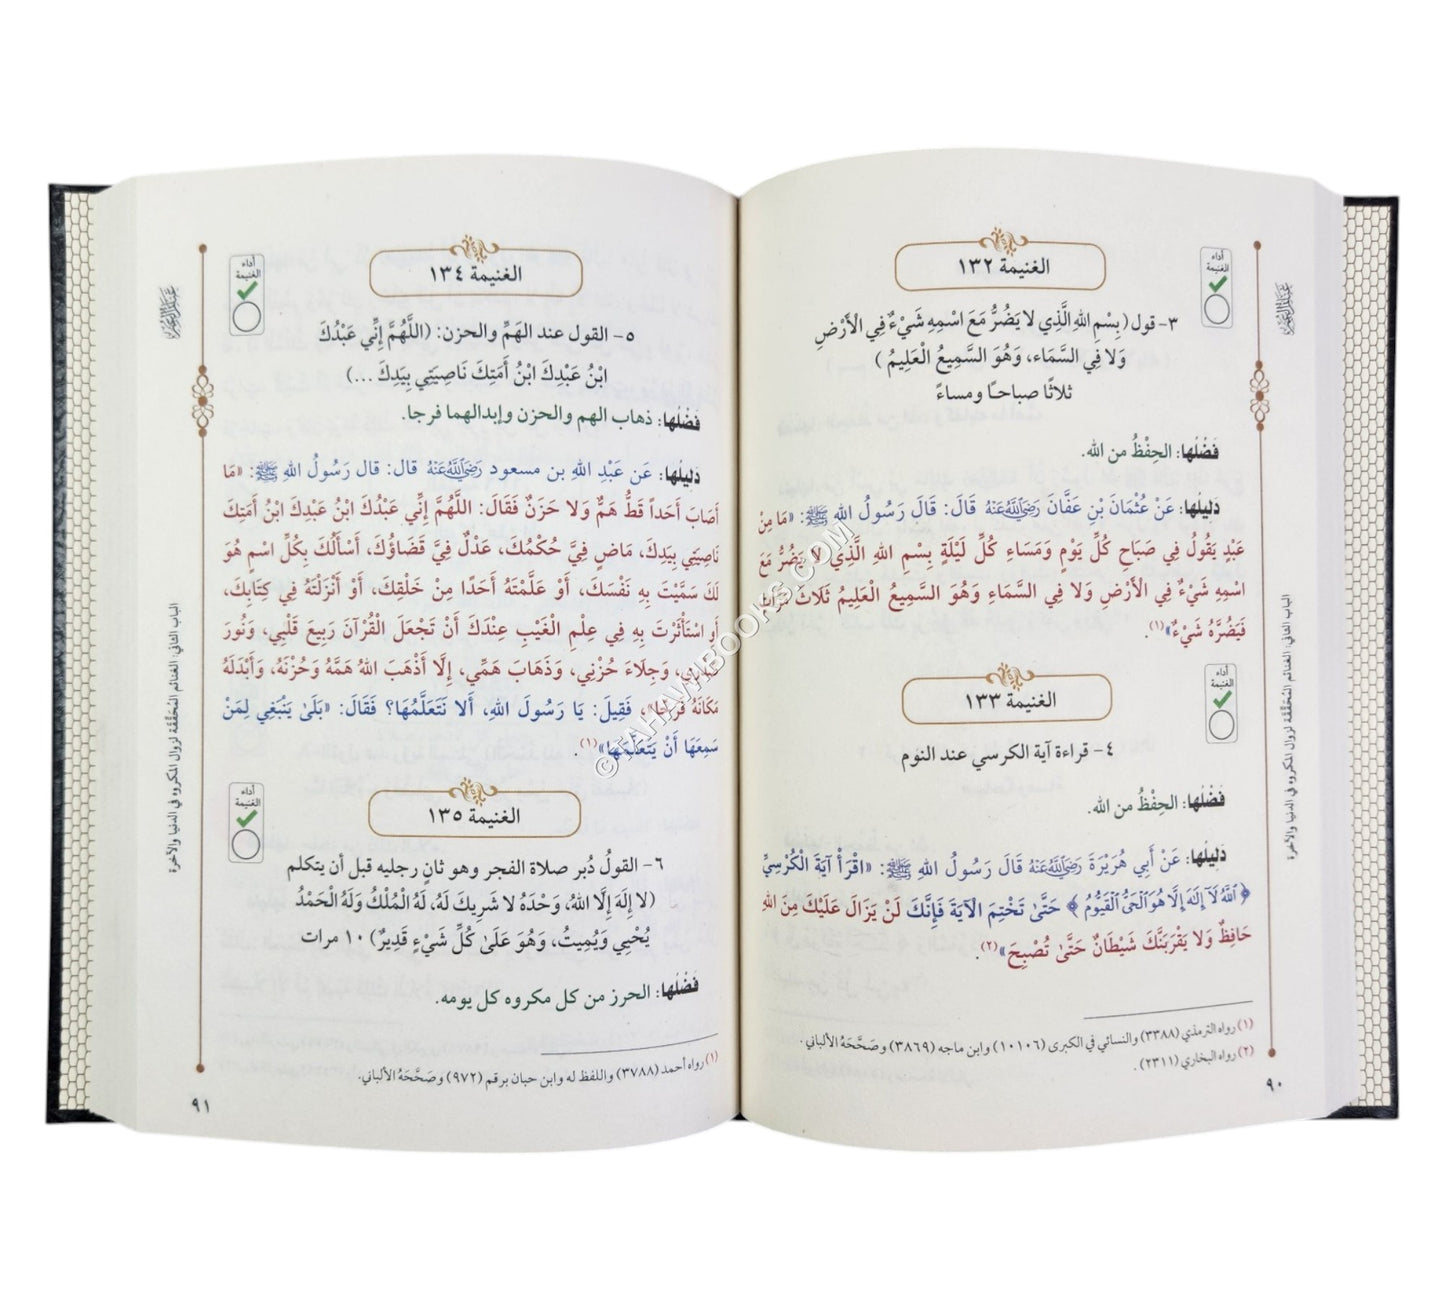 أداء
الغنيمة
الغنيمة ١٣٢
٣- قول (بِسْمِ اللهِ الَّذِي لا يَضُرُّ مَعَ اسْمِهِ شَيْءٌ فِي الْأَرْضِ
وَلا فِي السَّمَاء، وَهُوَ السَّمِيعُ الْعَلِيمُ )
ثلاثًا صباحًا ومساءً
فَضْلُها: الحِفْظُ من الله.
دَلِيلُها: عَنْ عُثْمَانَ بْنِ عَفَّانَ رَضِيَ اللَّهُ عَنْهُ قَالَ: قَالَ رَسُولُ الله ﷺ: «مَا مِنْ
عَبْدٍ يَقُولُ فِي صَبَاحِ كُلِّ يَوْمٍ وَمَسَاءِ كُلِّ لَيْلَةٍ بِسْمِ اللهِ الَّذِي لا يَضُرُّ مَعَ
اسْمِهِ شَيْءٌ فِي الْأَرْضِ وَلا فِي السَّمَاءِ وَهُوَ السَّمِيعُ الْعَلِيمُ ثَلاثَ مَرَّاتٍ
فَيَضُرَّهُ شَيْءٌ»(١).
أداء
الغنيمة
الغنيمة ١٣٣
٤- قراءة آية الكرسي عند النوم
فَضْلُها: الحِفْظُ من الله.
دَلِيلُها: عَنْ أَبِي هُرَيْرَةَ رَضِيَ اللَّهُ عَنْهُ قَالَ رَسُولُ اللهِ ﷺ: «اقْرَأْ آيَةَ الْكُرْسِيِّ
﴿ ٱللَّهُ لَآ إِلَٰهَ إِلَّا هُوَ ٱلْحَىُّ ٱلْقَيُّومُ ﴾ حَتَّىٰ تَخْتِمَ الْآيَةَ فَإِنَّكَ لَنْ يَزَالَ عَلَيْكَ مِنَ اللهِ
حَافِظٌ وَلا يَقْرَبَنَّكَ شَيْطَانٌ حَتَّىٰ تُصْبِحَ»(٢).
(١) رواه الترمذي (٣٣٨٨) والنسائي في الكبرى (١٠١٠٦) وابن ماجه (٣٨٦٩) وصَحَّحَهُ الألباني.
(٢) رواه البخاري (٢٣١١).
٩٠
الباب الثاني: الغنائم المُحَقِّقَة لزوال المكروه في الدنيا والآخرة
أداء
الغنيمة
الغنيمة ١٣٤
٥- القول عند الهَمِّ والحزن: (اللَّهُمَّ إِنِّي عَبْدُكَ
ابْنُ عَبْدِكَ ابْنُ أَمَتِكَ نَاصِيَتِي بِيَدِكَ ...)
فَضْلُها: ذهاب الهم والحزن وإبدالهما فرجا.
دَلِيلُها: عَن عَبْدِ اللهِ بن مسعود رَضِيَ اللَّهُ عَنْهُ قال: قال رَسُولُ اللهِ ﷺ: «مَا
أَصَابَ أَحَداً قَطُّ هَمٌّ وَلا حَزَنٌ فَقَالَ: اللَّهُمَّ إِنِّي عَبْدُكَ ابْنُ عَبْدِكَ ابْنُ أَمَتِكَ
نَاصِيَتِي بِيَدِكَ، مَاضٍ فِيَّ حُكْمُكَ، عَدْلٌ فِيَّ قَضَاؤُكَ، أَسْأَلُكَ بِكُلِّ اسْمٍ هُوَ
لَكَ سَمَّيْتَ بِهِ نَفْسَكَ، أَوْ عَلَّمْتَهُ أَحَدًا مِنْ خَلْقِكَ، أَوْ أَنْزَلْتَهُ فِي كِتَابِكَ،
أَوِ اسْتَأْثَرْتَ بِهِ فِي عِلْمِ الْغَيْبِ عِنْدَكَ أَنْ تَجْعَلَ الْقُرْآنَ رَبِيعَ قَلْبِي، وَنُورَ
صَدْرِي، وَجِلَاءَ حُزْنِي، وَذَهَابَ هَمِّي، إِلَّا أَذْهَبَ اللهُ هَمَّهُ وَحُزْنَهُ، وَأَبْدَلَهُ
مَكَانَهُ فَرَجًا»، فَقِيلَ: يَا رَسُولَ اللهِ، أَلا نَتَعَلَّمُهَا؟ فَقَالَ: «بَلَىٰ يَنْبَغِي لِمَنْ
سَمِعَهَا أَنْ يَتَعَلَّمَهَا»(١).
أداء
الغنيمة
الغنيمة ١٣٥
٦- القولُ دُبر صلاة الفجر وهو ثانٍ رجليه قبل أن يتكلم
(لا إِلَهَ إِلَّا اللهُ، وَحْدَهُ لا شَرِيكَ لَهُ، لَهُ الْمُلْكُ وَلَهُ الْحَمْدُ
يُحْيِي وَيُمِيتُ، وَهُوَ عَلَىٰ كُلِّ شَيْءٍ قَدِيرٌ) ١٠ مرات
فَضْلُها: الحرز من كل مكروه كل يومه.
(١) رواه أحمد (٣٧٨٨) واللفظ له وابن حبان برقم (٩٧٢) وصَحَّحَهُ الألباني.
٩١
الباب الثاني: الغنائم المُحَقِّقَة لزوال المكروه في الدنيا والآخرة
© TAHAWIBOOKS.COM